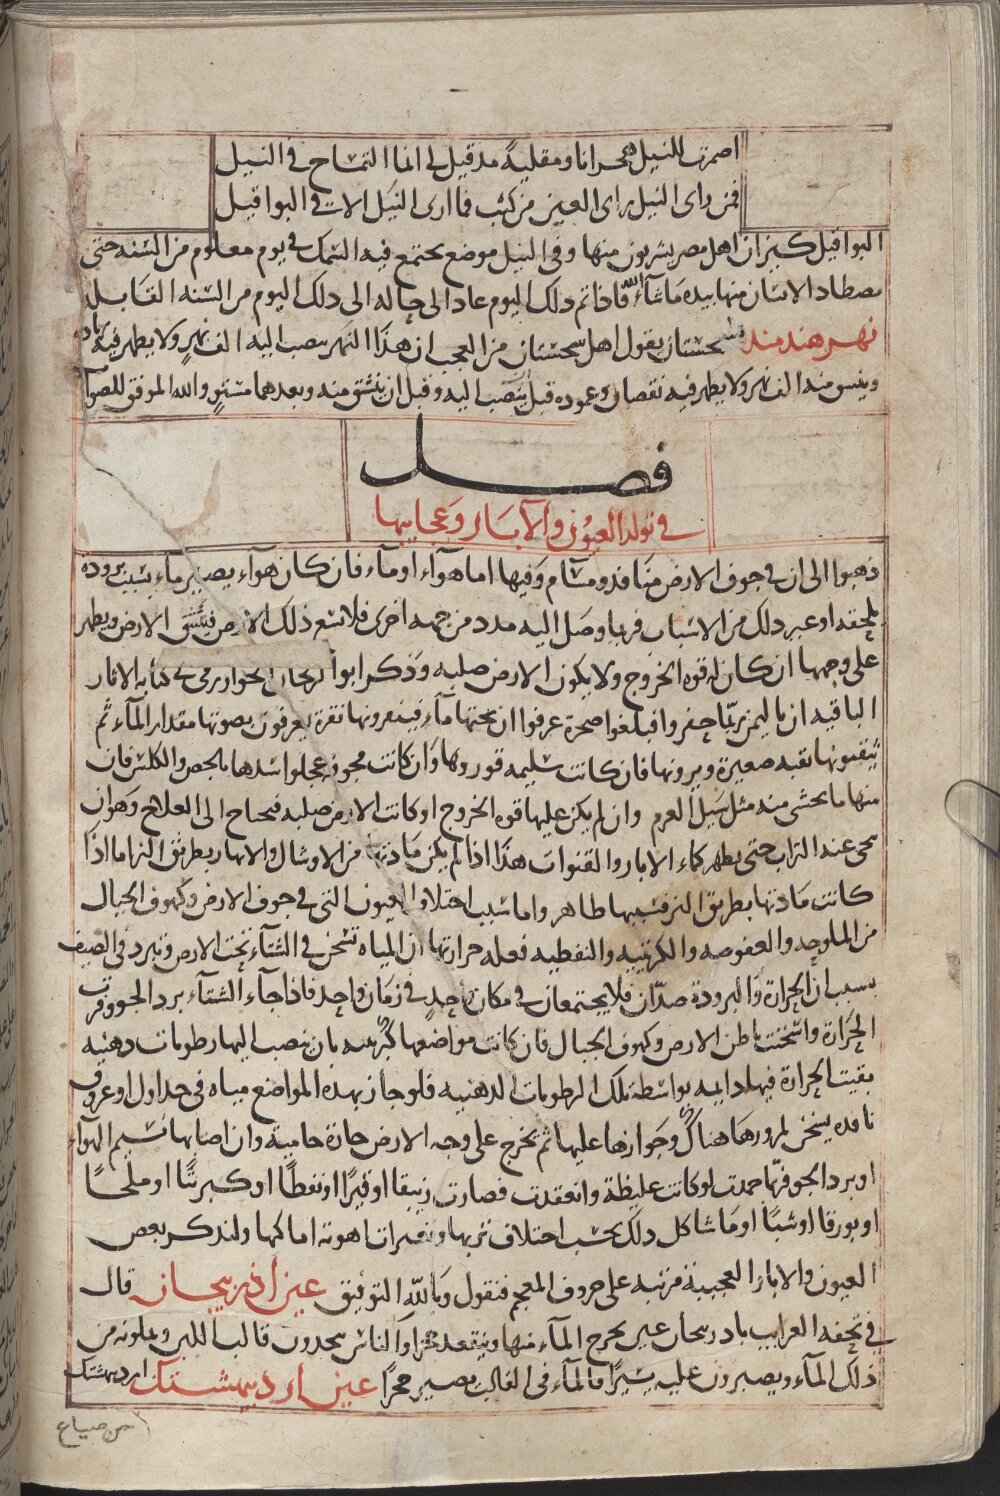 اضمرت للنيل هجرانا ومقلية مذ قيل لي انما التمساح في النيل
فمن راى النيل راى العين من كثب فما ارى النيل الا في البواقيل
البواقيل كيزان اهل مصر يشربون منها وفي النيل موضع يجتمع فيه السمك في يوم معلوم من السنة حتى
يصطاد الانسان منها بيده ما شآء الله فاذا تم ذلك اليوم عاد الى حاله الى ذلك اليوم من السنة القابلة
نهر هندمند بسجستان يقول اهل سجستان من العجب ان هذا النهر ينصب اليه الف نهر ولا يظهر فيه زيادة
وينشق منه الف نهر ولا يظهر فيه نقصان وعموده قبل ينصب اليه وقبل ان ينشق منه وبعدهما مستو والله الموفق للصواب
فصل
في تولد العيون والآبار وعجايبها
ذهبوا الى ان في جوف الارض منافذ ومسام وفيها اما هوآء او مآء فان كان هوآء يصير ماء بسبب برودة
يلحقه او غير ذلك من الاسباب فربما وصل اليه مدد من جهة اخرى فلا تسع ذلك الارض فينشق الارض ويظهر
على وجهها ان كان له قوة الخروج ولا يكون الارض صلبة وذكر ابو الريحان الخوارزمي في كتابه الاثار
الباقية ان باليمن ربما حفروا فبلغوا صخرة عرفوا ان تحتها مآء فينقرونها نقرة يعرفون بصوتها مقدار المآء ثم
يثقبونها ثقبة صغيرة ويرونها فان كانت سليمة قوروها وان كانت مخوفة عجلوا سدها بالجص والكلس فان
منها ما يخشى منه مثل سيل العرم وان لم يكن عليها قوة الخروج او كانت الارض صلبة فيحتاج الى العلاج وهو ان
ينحى عنه التراب حتى يظهر كماء الابار والقنوات هذا اذا لم يكن مادتها من الاوشال والانهار بطريق النز اما اذا
كانت مادتها بطريق النز فسببها ظاهر واما سبب اختلاف العيون التى في جوف الارض وكهوف الجبال
من الملوحة والعفوصة والكبريتية والنفطية فعلة حرارتها ان المياه تسخن في الشتآء تحت الارض وتبرد في الصيف
بسبب ان الحرارة والبرودة ضدان فلا يجتمعان في مكان واحد في زمان واحد فاذا جآء الشتآء برد الجو وفرت
الحرارة واسخنت باطن الارض وكهوف الجبال فان كانت مواضعها كبريتية بان ينصب اليها رطوبات دهنية
بقيت الحرارة فيها دايمة بواسطة تلك الرطوبات الدهنية فلو جاز بهذه المواضع مياه في جداول او عروق
نافذة يسخن لمرورها هناك وجوازها عليها ثم يخرج على وجه الارض حارة حامية وان اصابها نسيم الهوآء
او برد الجو فربما جمدت لو كانت غليظة وانعقدت فصارت زيبقا او قيرًا او نفطًا او كبريتًا او ملحًا
او بورقا او شبًا او ما شاكل ذلك بحسب اختلاف تربها وتغيرات اهوية اماكنها ولنذكر بعض
العيون والابار العجيبة مرتبة على حروف المعجم فنقول وبالله التوفيق عين اذربيجان قال
في تحفة الغرايب باذربيجان عين يخرج المآء منها وينعقد حجرًا والناس يتخذون قالب اللبن ويملونه من
ذلك المآء ويصبرون عليه يسيرًا فالمآء في القالب يصير حجرًا عين اردبيهشتك اردبيهشتك
من ضياع